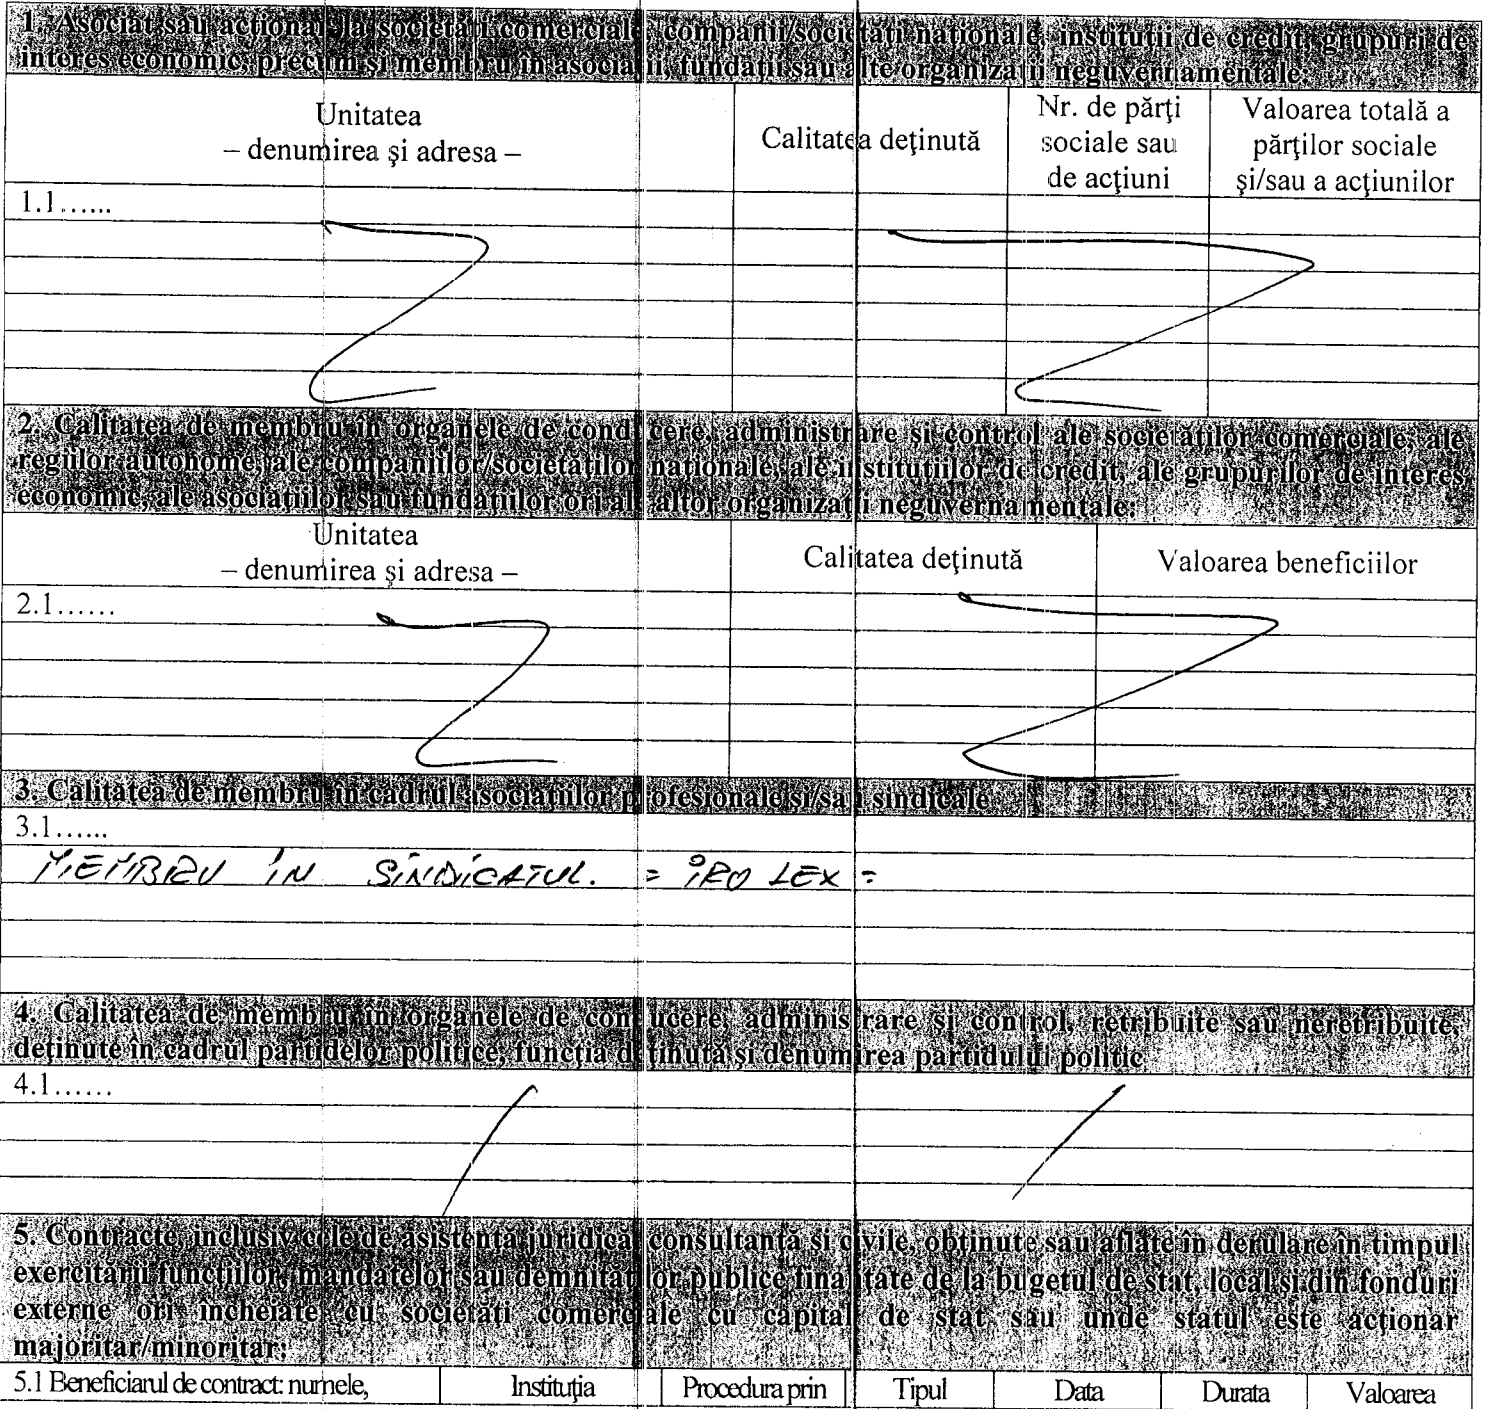 1. Asociat sau acţionar la societăţi comerciale, companii/societăţi naţionale, instituţii de credit, grupuri de
interes economic, precum şi membru în asociaţii, fundaţii sau alte organizaţii neguvernamentale:
Unitatea
– denumirea şi adresa –
Calitatea deţinută
Nr. de părţi
sociale sau
de acţiuni
Valoarea totală a
părţilor sociale
şi/sau a acţiunilor
1.1......
2. Calitatea de membru în organele de conducere, administrare şi control ale societăţilor comerciale, ale
regiilor autonome, ale companiilor/societăţilor naţionale, ale instituţiilor de credit, ale grupurilor de interes
economic, ale asociaţiilor sau fundaţiilor ori ale altor organizaţii neguvernamentale:
Unitatea
– denumirea şi adresa –
Calitatea deţinută
Valoarea beneficiilor
2.1......
3. Calitatea de membru în cadrul asociaţiilor profesionale şi/sau sindicale
3.1......
MEMBRU IN SINDICATUL. = PRO LEX =
4. Calitatea de membru în organele de conducere, administrare şi control, retribuite sau neretribuite,
deţinute în cadrul partidelor politice, funcţia deţinută şi denumirea partidului politic
4.1......
5. Contracte, inclusiv cele de asistenţă juridică, consultanţă si civile, obţinute sau aflate în derulare în timpul
exercitării funcţiilor, mandatelor sau demnităţilor publice finanţate de la bugetul de stat, local si din fonduri
externe ori încheiate cu societăţi comerciale cu capital de stat sau unde statul este acţionar
majoritar/minoritar:
5.1 Beneficiarul de contract: numele,
Instituţia
Procedura prin
Tipul
Data
Durata
Valoarea